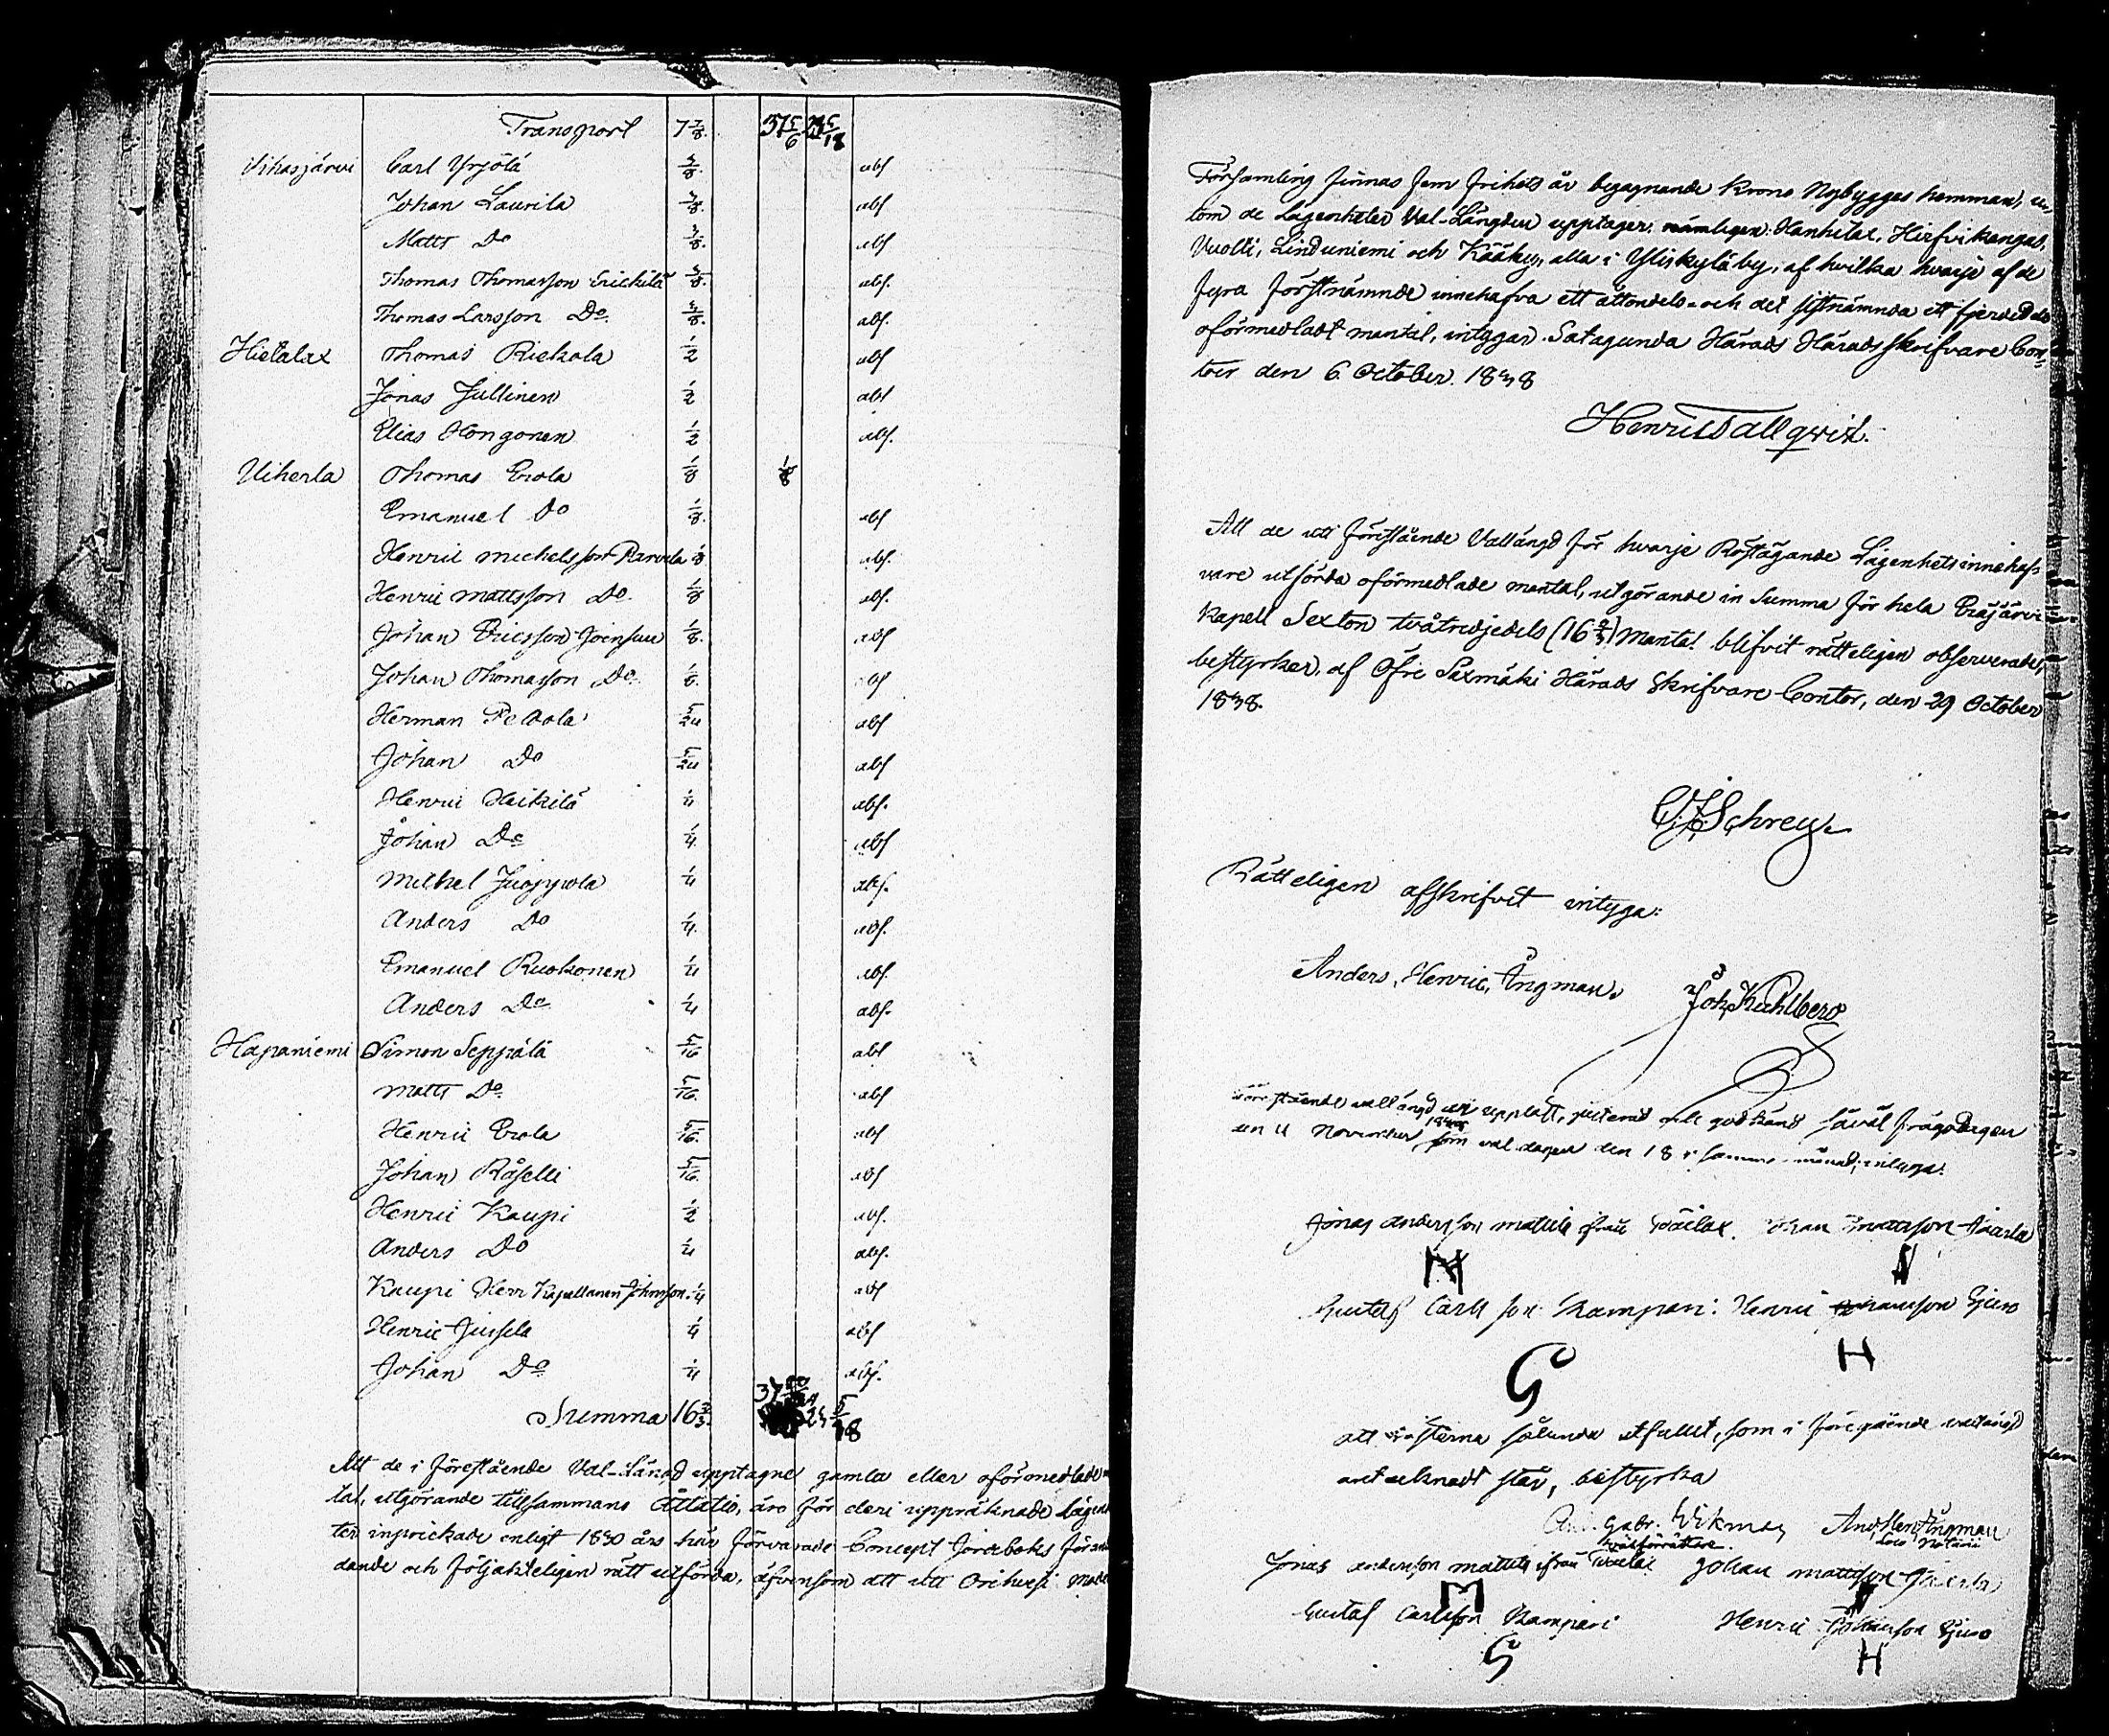 Transport 7 7/8. 37 5/6
Vihasjärvi Carl Yrjölä 3/8. abs
Johan Laurila 3/8. abs
Matts Do 3/8. abs
Thomas Thomasson Erickilä 3/8. abs.
Thomas Larsson Do. 3/8. abs.
Hietalax Thomas Riekola 1/2 abs
Jonas Jullinen 1/2 abs
Elias Hongonen 1/2 abs.
Uiherla Thomas Erola 1/8 1/8
Emanuel Do 1/8. abs
Henric Michelsson Parvela 1/8 abs.
Henric Mattsson Do. 1/8 abs.
Johan Ericsson Joensuu 1/8. abs
Johan Thomasson Do. 1/8. abs
Herman Peltola 5/24 abs
Johan Do 5/24 abs
Henric Heikilä 1/4 abs.
Johan Do 1/4. abs
Michel Juoppola 1/4 abs.
Anders Do 1/4. abs.
Emanuel Ruokonen 1/4 abs.
Anders Do 1/4 abs.
Hapaniemi Simon Seppälä 5/16 abs
Matts Do. 5/16. abs
Henric Erola 5/16. abs
Johan Råselli 5/16. abs
Henric Kaupi 1/2 abs.
Anders Do 1/4 abs.
Kaupi Herr Kapellanen Johnsson. 1/4 abs
Henric Jussela 1/4 abs
Johan Do 1/4 abs.
Summa 16 2/3.
Att de i förestående Val-Längd upptagne gamla eller oförmedlade
tal, utgörande tillsammans äro för deri uppräknade Lägen
ter inprickade enligt 1830 års här förvarade Concept Jordeboks
dande och följakteligen rätt utförda, äfvensom att uti Orihvesi Moder
Församling finnas fem frihets år begagnande Krono Nybygges hemman,
tom de Lägenheter Val-Längden upptager, nämligen: Hanhilax, Hirfvikangas,
Vuolti, Linduniemi och Kääky, alla i Yliskylä by, af hvilka hvarje af de
fyra förstnämnde innehafva ett åttondels- och det sistnämnda ett fjerdedels
oförmedladt mantal, intygar. Satagunda Härads Häradsskrifvare Con-
toir den 6. October. 1838
Henric Tallqvist.
Att de uti förestående Vallängd för hvarje Röstägande Lägenhetsinnehaf-
vare utförda oförmedlade mantal, utgörande in Summa för hela Eräjärvi
Kapell Sexton tvåtredjedels (16 2/3) Mantal blifvit rätteligen observerade,
bestyrker, af Öfre Saxmäki Härads Skrifvare Contor, den 29 October
1838.
Schrey
Rätteligen afskrifvit intyga:
Anders, Henric, Ångman. Joh. Kahlberg
Förestående vallängd är uppläst, justerad och godkänd såväl frågodagen
den 11 November 1838 som valdagen den 18 i samma månad; intyga:
Jonas Andersson Mattila ifrån Johan Mattsson
M
Gustaf Carlsson Kampari: Henric Johansson Ejuro
G H
att rösterna sålunda utfallit, som i föregående vallängd
antecknadt står, bestyrka
Gabr. Wikman And Hen Ångman
Valförrättare. Loco Notarii
Jonas Andersson Mattila ifrån Johan Mattsson
M
Gustaf Carlsson Kampari Henric Johansson Ejuro
G H